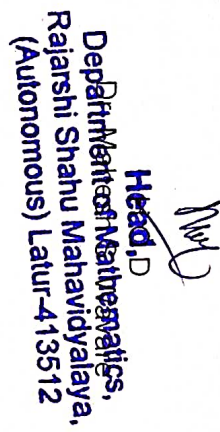 Head,
Department of Mathematics,
Rajarshi Shahu Mahavidyalaya,
(Autonomous) Latur-413512